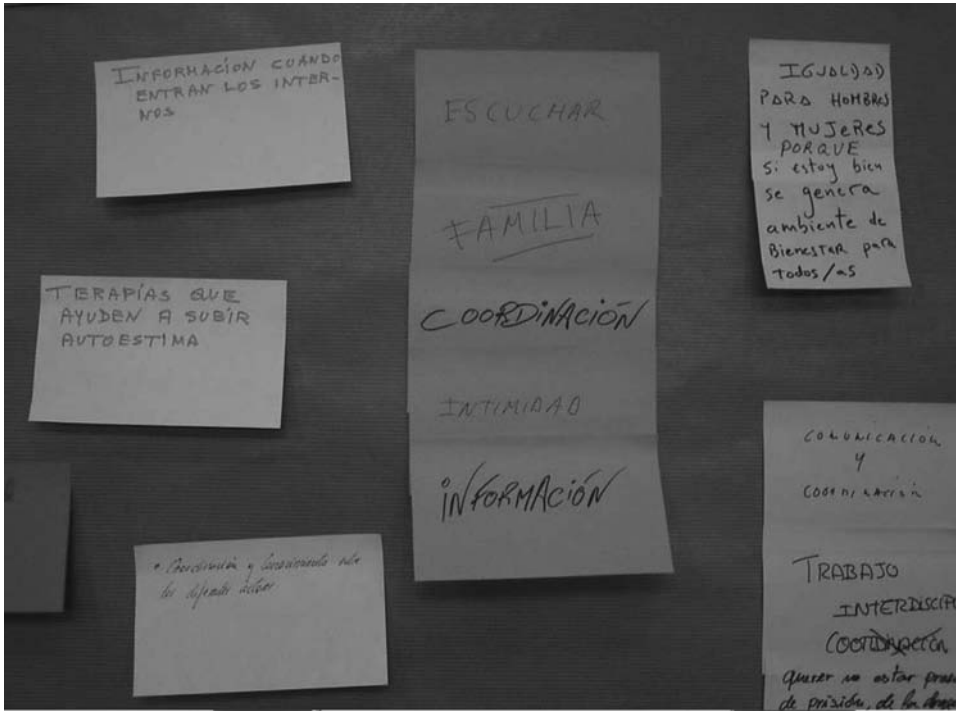 INFORMACIÓN CUANDO
ENTRAN LOS INTER-
NOS
TERAPÍAS QUE
AYUDEN A SUBIR
AUTOESTIMA
• Coordinación y conocimiento entre
los diferentes
ESCUCHAR
FAMILIA
COORDINACIÓN
INTIMIDAD
INFORMACIÓN
IGUALDAD
PARA HOMBRES
Y MUJERES
PORQUE
Si estoy bien
se genera
ambiente de
Bienestar para
todos/as
COMUNICACIÓN
Y
COORDINACIÓN
TRABAJO
INTERDISCIP
COORDINACIÓN
querer no estar
de prisión, de la